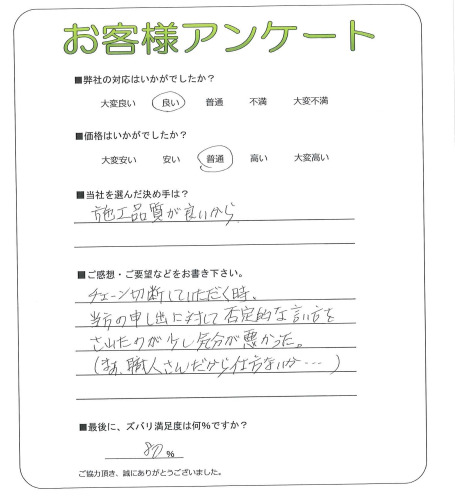 お客様アンケート
■弊社の対応はいかがでしたか？
大変良い 良い 普通 不満 大変不満
■価格はいかがでしたか？
大変安い 安い 普通 高い 大変高い
■当社を選んだ決め手は？
施工品質が良いから
■ご感想・ご要望などをお書き下さい。
チェーン切断していただく時、
当方の申し出に対して否定的な言い方を
されたのが少し気分が悪かった。
(まぁ、職人さんだから仕方ないか…)
■最後に、ズバリ満足度は何％ですか？
80 ％
ご協力頂き、誠にありがとうございました。